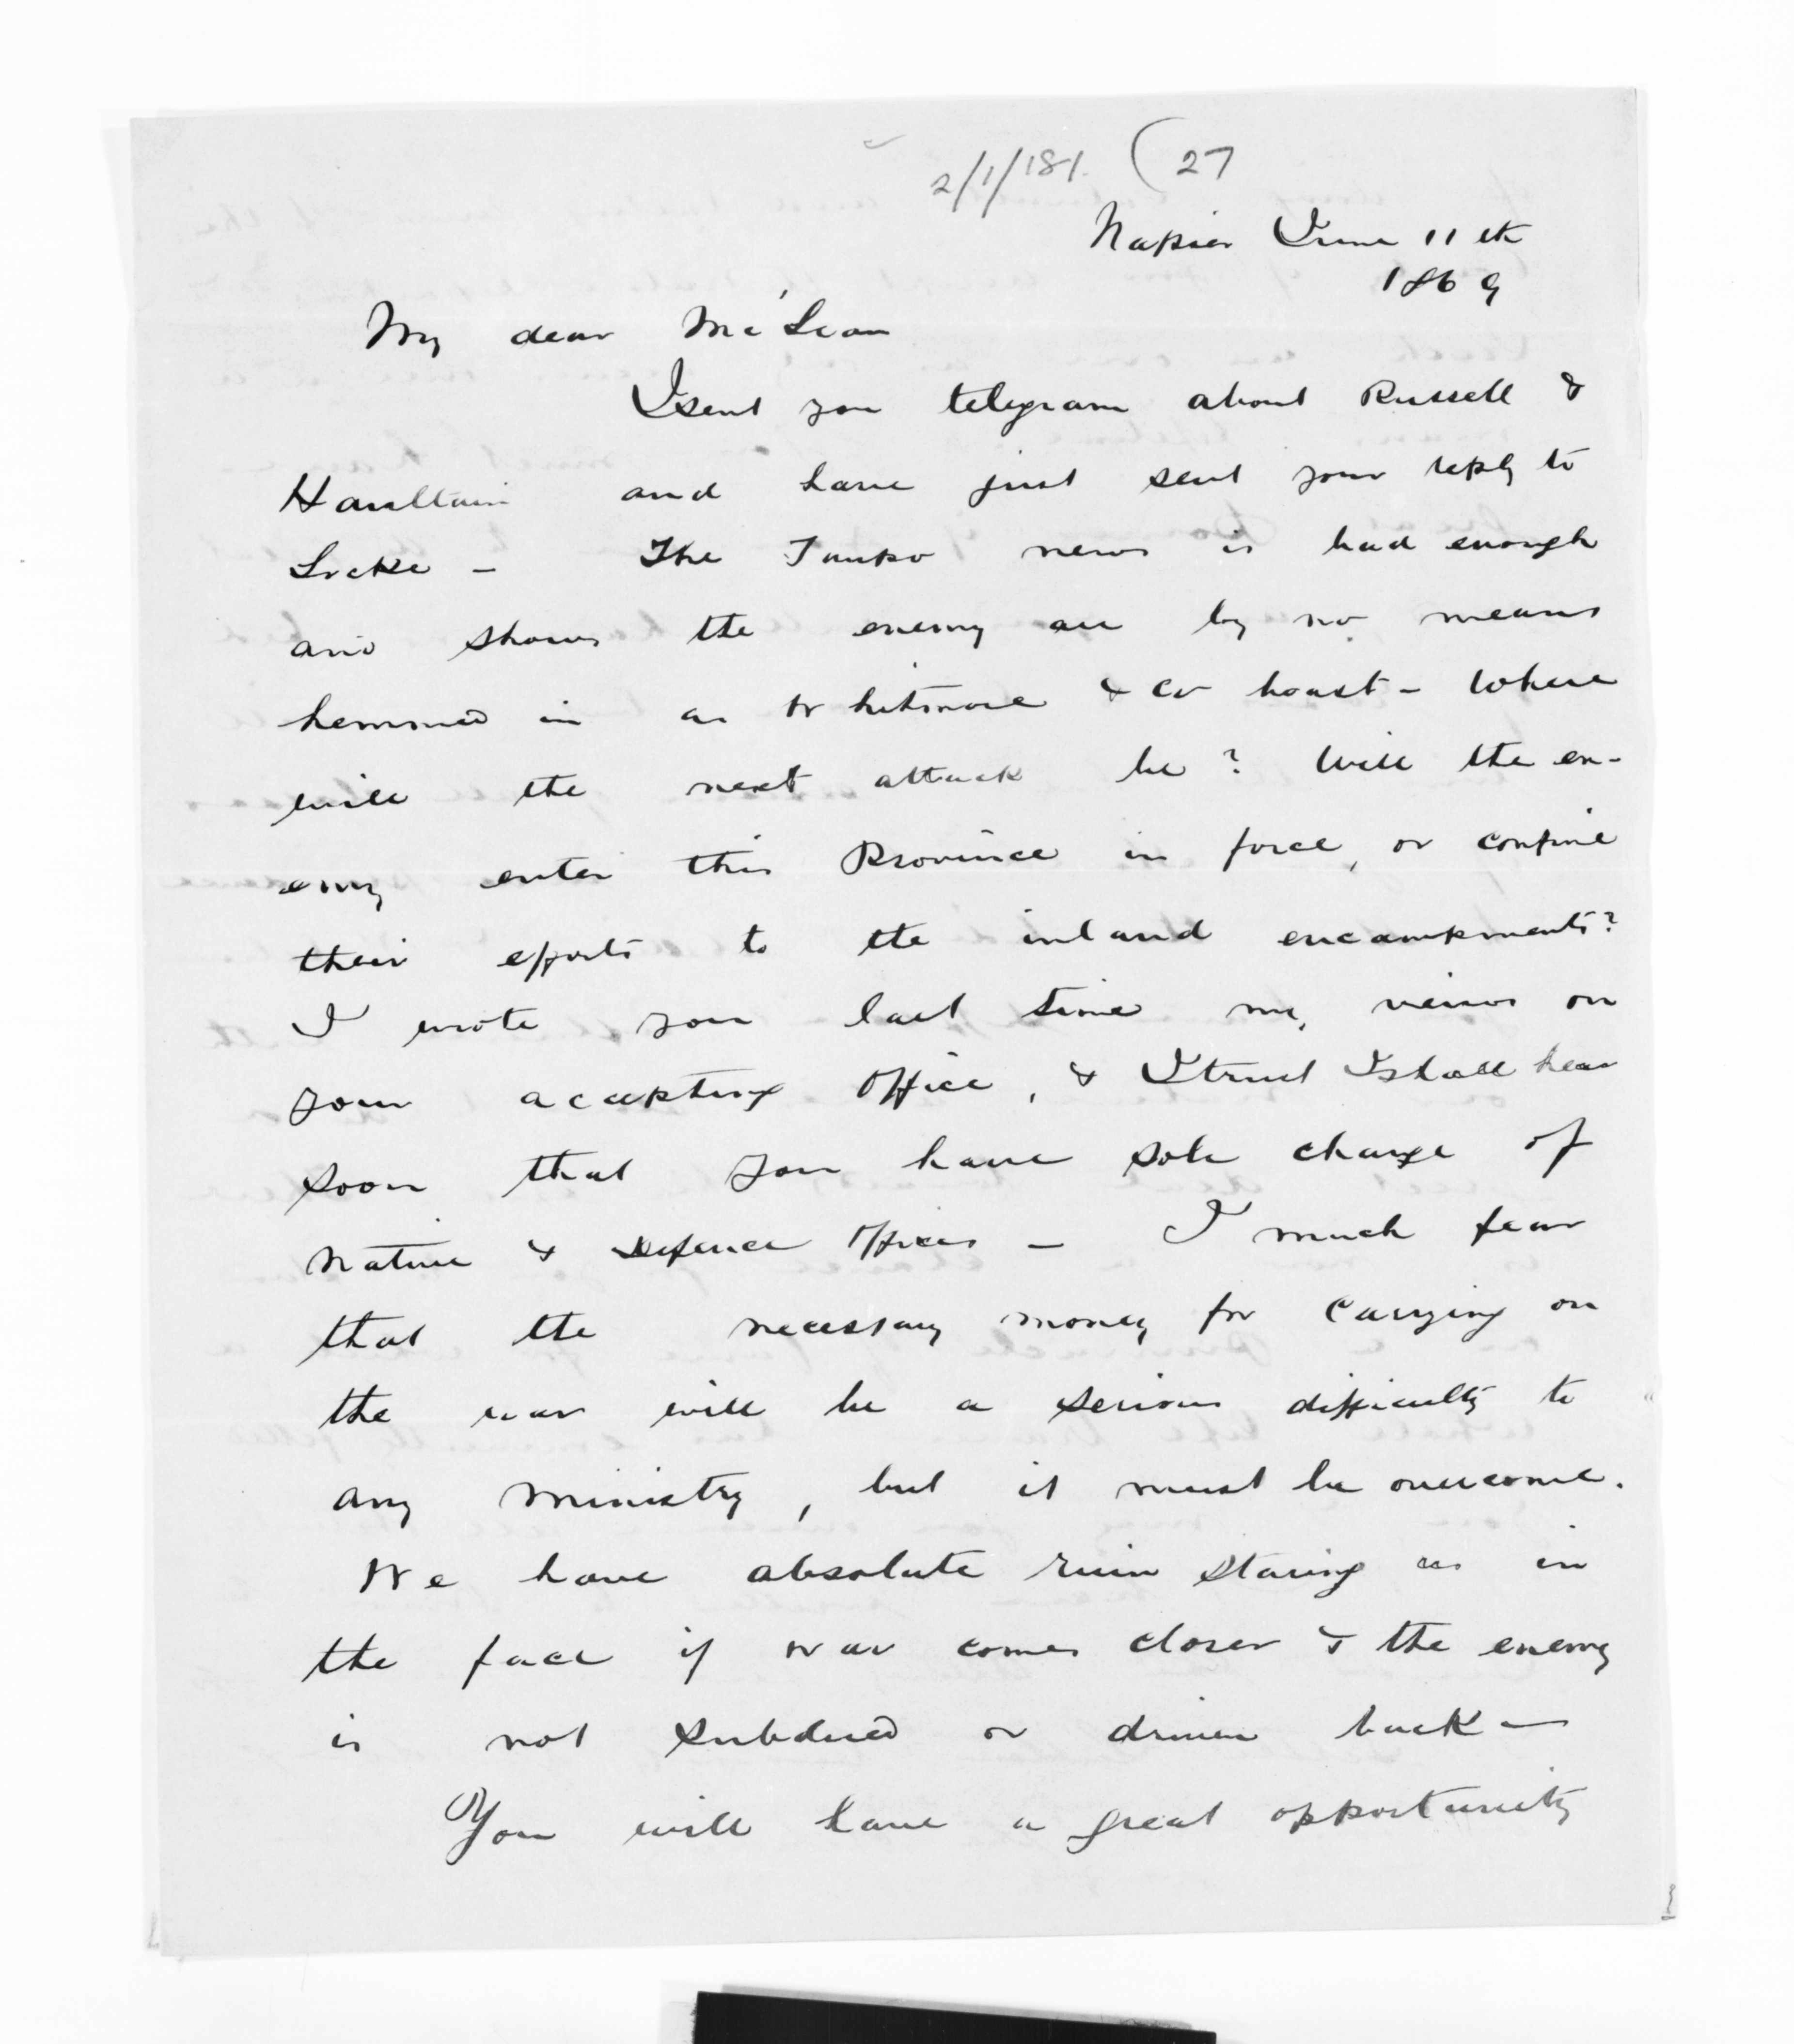 2/1/181. (27
Napier June 11th
1869
My dear McLean
I sent you telegram about Russell &
Haultain and have just sent your reply to
Locke - The Taupo news is bad enough
and shows the enemy are by no means
hemmed in as Whitmore & Co boast - Where
will the next attack be? Will the en-
emy enter this Province in force, or confine
their efforts to the inland encampments?
I wrote you last time my views on
your accepting office, & I trust I shall hear
soon that you have sole charge of
Native & Defence Offices - I much fear
that the necessary money for carrying on
the war will be a serious difficulty to
any ministry, but it must be overcome.
We have absolute ruin staring us in
the face if war comes closer & the enemy
is not subdued or driven back -
You will have a great opportunity